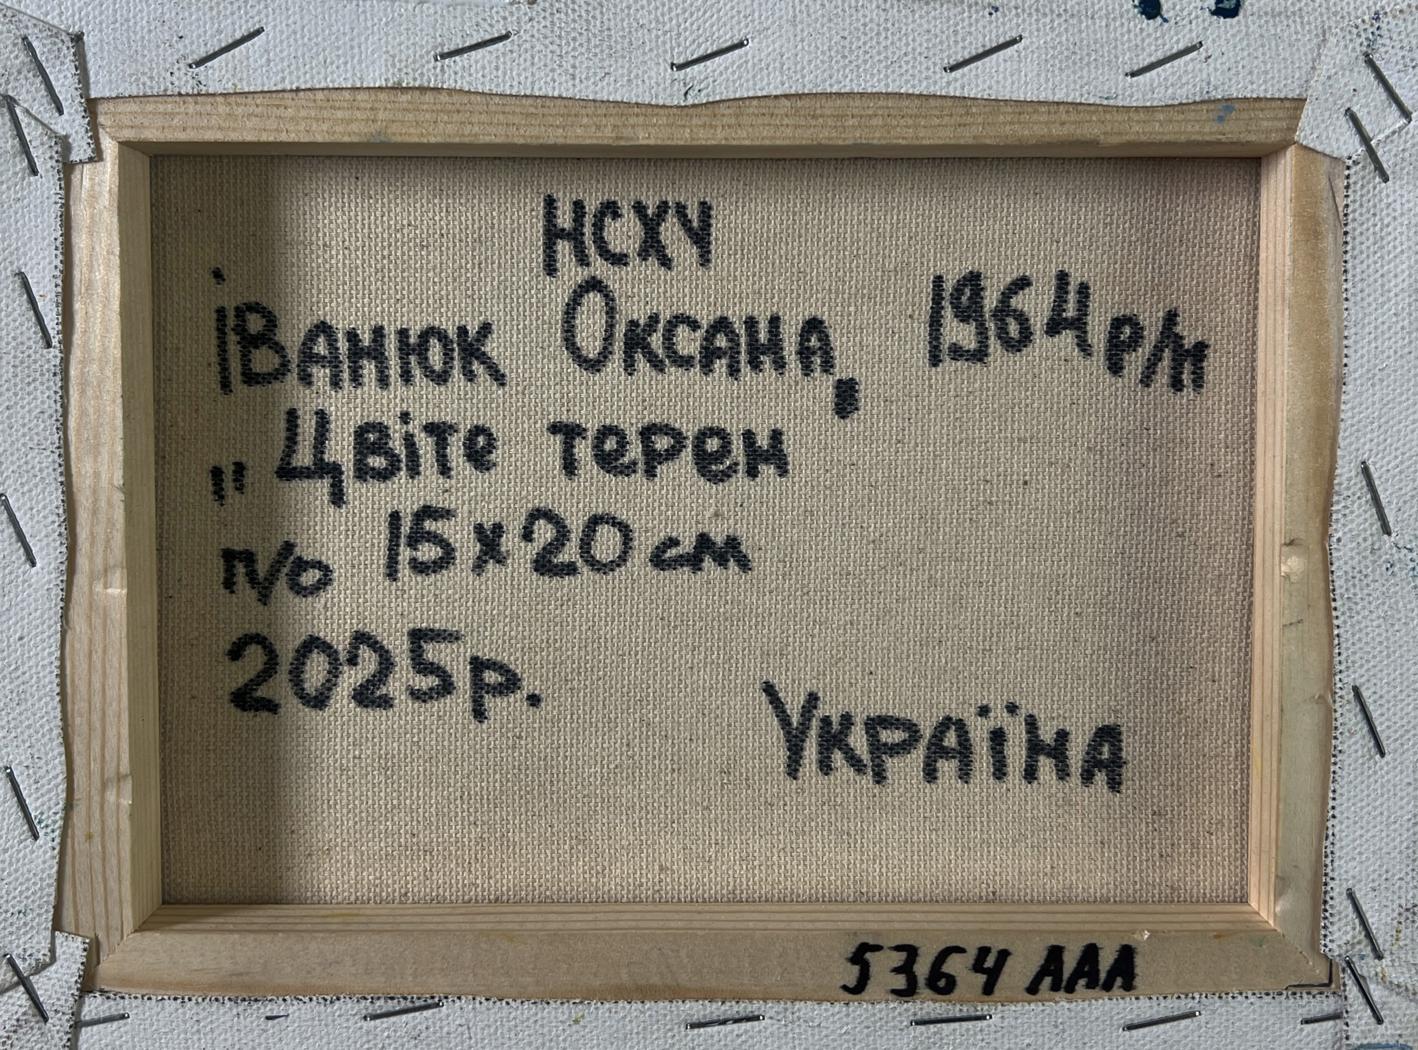 НСХУ
Іванюк Оксана, 1964 р/н
„Цвіте терен
п/о 15х20 см
2025р.
Україна
5364 ААА